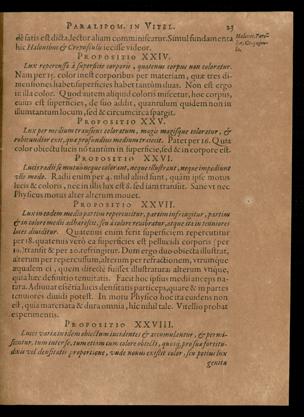 PARALIPOM. IN VITEL.
23
de satis est dicta, lector aliam comminiscatur. Simul fundamenta
hic iecisse videor.
PROPOSITIO XXIV.
Lux repercussa à superficie corporis, quatenus corpus non coloratur.
Nam per 15. color inest corporibus per materiam, quæ tres di-
mensiones habet: superficies habet tantùm duas. Non est ergo
in illa color. Quod autem aliquid coloris miscetur, hoc corpus,
cuius est superficies, de suo addit, quatenus quidem non in
illum tantum locum, sed & circumcirca spargit.
PROPOSITIO XXV.
Lux per medium transiens coloratum, magis magisque coloratur, &
robustior exit, quo profundius medium traiecit. Patet per 16. Quia
color obiectus lucis nõ tantùm in superficie, sed & in corpore est.
PROPOSITIO XXVI.
Lucis radij se mutuò neque colorant, neque illustrant, neque impediunt
vllo modo. Radij enim per 4. nihil aliud sunt, quàm ipse motus
lucis & coloris, nec in illis lux est 8. sed iam transit. Sane vt nec
Physicus motus alter alterum mouet.
PROPOSITIO XXVII.
Lux in eodem medio partim repercutitur, partim infringitur, partim
& in colore medij adhærescit, seu à colore reuibratur, atque ita in tenuiores
luces diuiditur. Quatenus enim ferit superficiem repercutitur
per 18. quatenus verò ea superficies est pellucidi corporis (per
10.) transit & per 20. refringitur. Dum ergo duo obiecta illustrat,
alterum per repercussum, alterum per refractionem, vtrumque
æqualem ei, quem directè fuisset illustratura alterum vtrique,
quia hæc definitio tenuitatis. Facit hoc ipsius medij anceps na-
tura. Adiuuat etsi etia lucis densitatis particeps, quare & in partes
tenuiores diuidi potest. In motu Physico hoc ita euidens non
est, quia materiata & dura omnia, hic nihil tale. Vitellio probat
experimentis.
PROPOSITIO XXVIII.
Luces variæ in idem obiectum incidentes & accumulantur, & permi-
scentur, tum inter se, tum etiam cum colore obiecti, quæq; pro sua fortitu-
dinis vel densitatis proportione, vnde nonus existit color, seu potius lux
genita